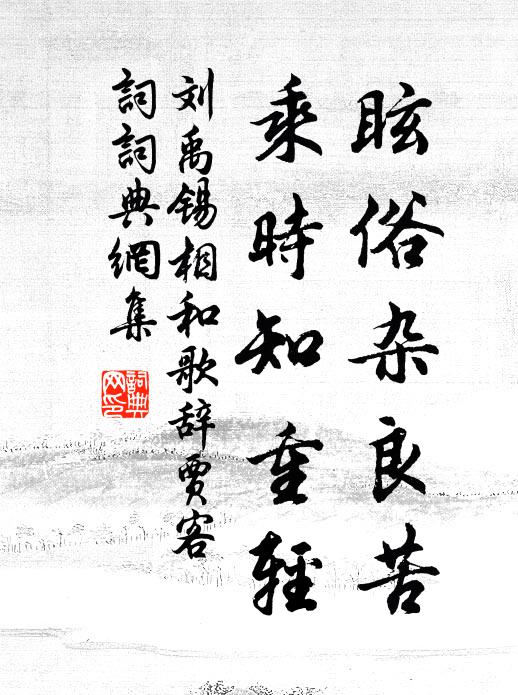 眩俗杂良苦
乘時知重輕
刘禹锡相和歌辞贾客
詞詞典網集
詞典网印